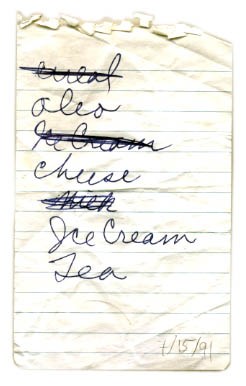 cereal
oleo
Ice Cream
cheese
milk
Ice Cream
Tea
1/15/91